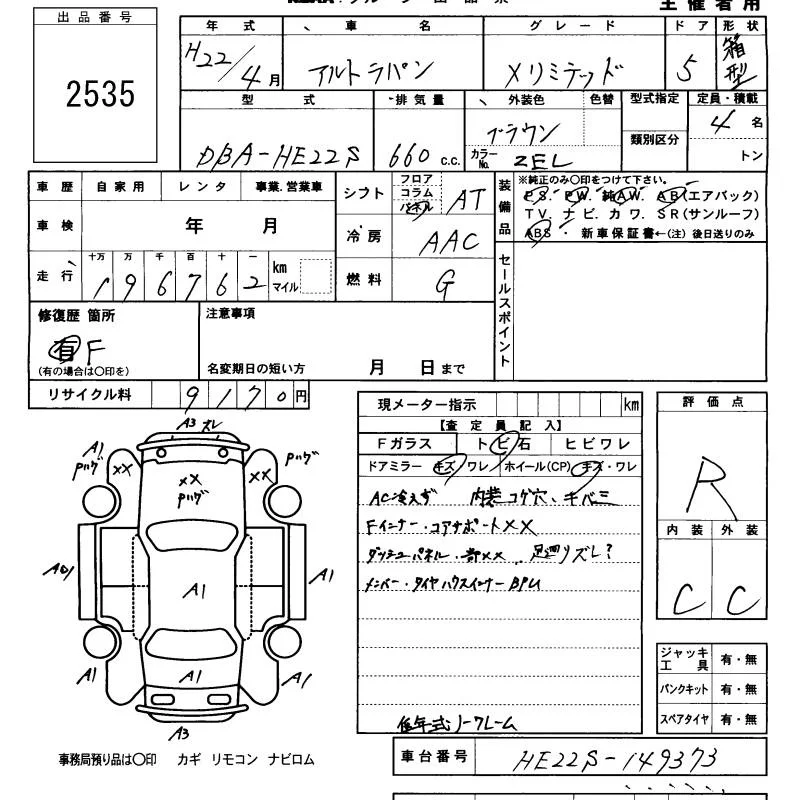 主催者用
出品番号
2535
年式 車名 グレード ドア 形状
H22/4月 アルトラパン Xリミテッド 5 箱型
型式 排気量 外装色 色替 型式指定 定員・積載
類別区分
DBA-HE22S 660 c.c. ブラウン 4名
カラーNo. ZEL トン
車歴 自家用 レンタ 事業.営業車
車検 年 月
走行 十万 万 千 百 十 一 km マイル
196762
シフト フロア コラム パネル AT
冷房 AAC
燃料 G
装備品
※純正のみ〇印をつけて下さい。
PS. PW. 純AW. AB(エアバック)
TV. ナビ. カワ. SR(サンルーフ)
ABS・ 新車保証書←(注) 後日送りのみ
セールスポイント
修復歴 箇所
有 F
(有の場合は〇印を)
注意事項
名変期日の短い方 月 日まで
リサイクル料 9170円
現メーター指示 km
【査定員記入】
Fガラス トビ石 ヒビワレ
ドアミラー キズ・ワレ ホイール(CP) キズ・ワレ
AC冷えず 内装コゲ穴、キバミ
Fインナー・コアサポートXX
ダッシュパネル・一部XX 足廻りズレ?
メンバー・タイヤハウスインナーBPU
低年式ノークレーム
評価点
R
内装 外装
C C
ジャッキ工具 有・無
パンクキット 有・無
スペアタイヤ 有・無
A3 ズレ
A1 Pハゲ XX
XX Pハゲ
XX Pハゲ
A1
A1
A1
A1
A1
A1
A3
事務局預り品は〇印 カギ リモコン ナビロム
車台番号 HE22S-149373